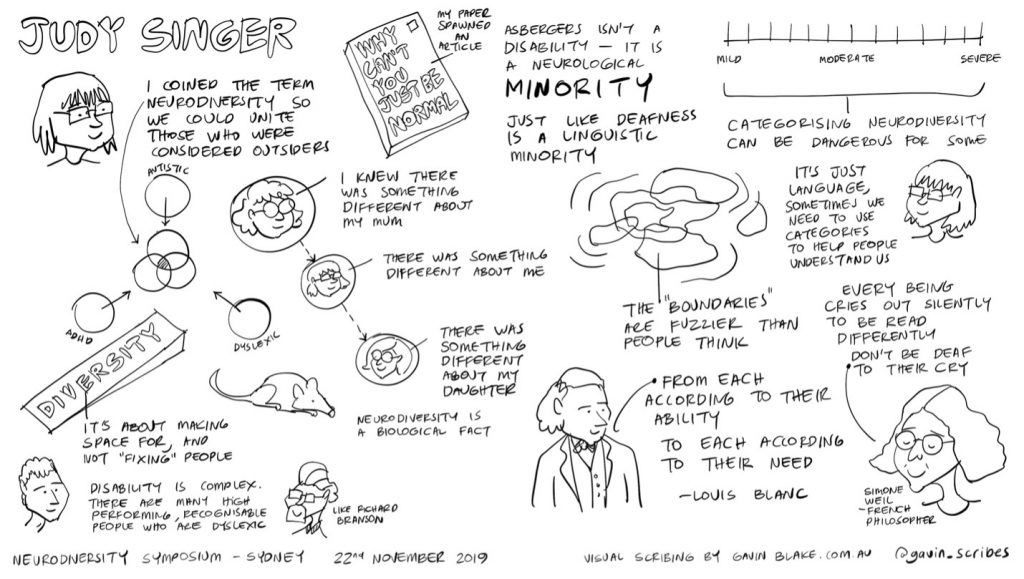 JUDY SINGER
I COINED THE TERM
NEURODIVERSITY SO
WE COULD UNITE
THOSE WHO WERE
CONSIDERED OUTSIDERS
AUTISTIC
ADHD
DYSLEXIC
DIVERSITY
IT'S ABOUT MAKING
SPACE FOR, AND
NOT "FIXING" PEOPLE
DISABILITY IS COMPLEX.
THERE ARE MANY HIGH
PERFORMING, RECOGNISABLE
PEOPLE WHO ARE DYSLEXIC
LIKE RICHARD
BRANSON
MY PAPER
SPAWNED
AN
ARTICLE
WHY
CAN'T
YOU
JUST BE
NORMAL
I KNEW THERE
WAS SOMETHING
DIFFERENT ABOUT
MY MUM
THERE WAS SOMETHING
DIFFERENT ABOUT ME
THERE WAS
SOMETHING
DIFFERENT
ABOUT MY
DAUGHTER
NEURODIVERSITY IS
A BIOLOGICAL FACT
ASBERGERS ISN'T A
DISABILITY – IT IS
A NEUROLOGICAL
MINORITY
JUST LIKE DEAFNESS
IS A LINGUISTIC
MINORITY
MILD MODERATE SEVERE
CATEGORISING NEURODIVERSITY
CAN BE DANGEROUS FOR SOME
IT'S JUST
LANGUAGE,
SOMETIMES WE
NEED TO USE
CATEGORIES
TO HELP PEOPLE
UNDERSTAND US
THE "BOUNDARIES"
ARE FUZZIER THAN
PEOPLE THINK
EVERY BEING
CRIES OUT SILENTLY
TO BE READ
DIFFERENTLY
DON'T BE DEAF
TO THEIR CRY
SIMONE
WEIL
– FRENCH
PHILOSOPHER
FROM EACH
ACCORDING TO THEIR
ABILITY
TO EACH ACCORDING
TO THEIR NEED
– LOUIS BLANC
NEURODIVERSITY SYMPOSIUM – SYDNEY 22ND NOVEMBER 2019
VISUAL SCRIBING BY GAVIN BLAKE.COM.AU @gavin_scribes